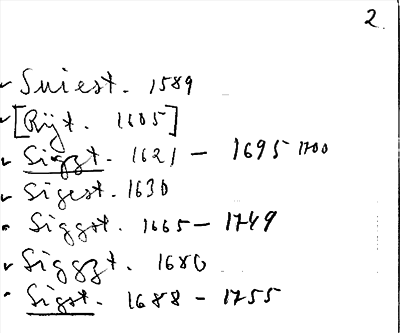 2.
Suiest. 1589
[Rijt. 1605]
Siggt. 1621 – 1695 1700
Sigest. 1630
Siggst. 1665 – 1749
Siggzt. 1680
Sigst. 1688 – 1755